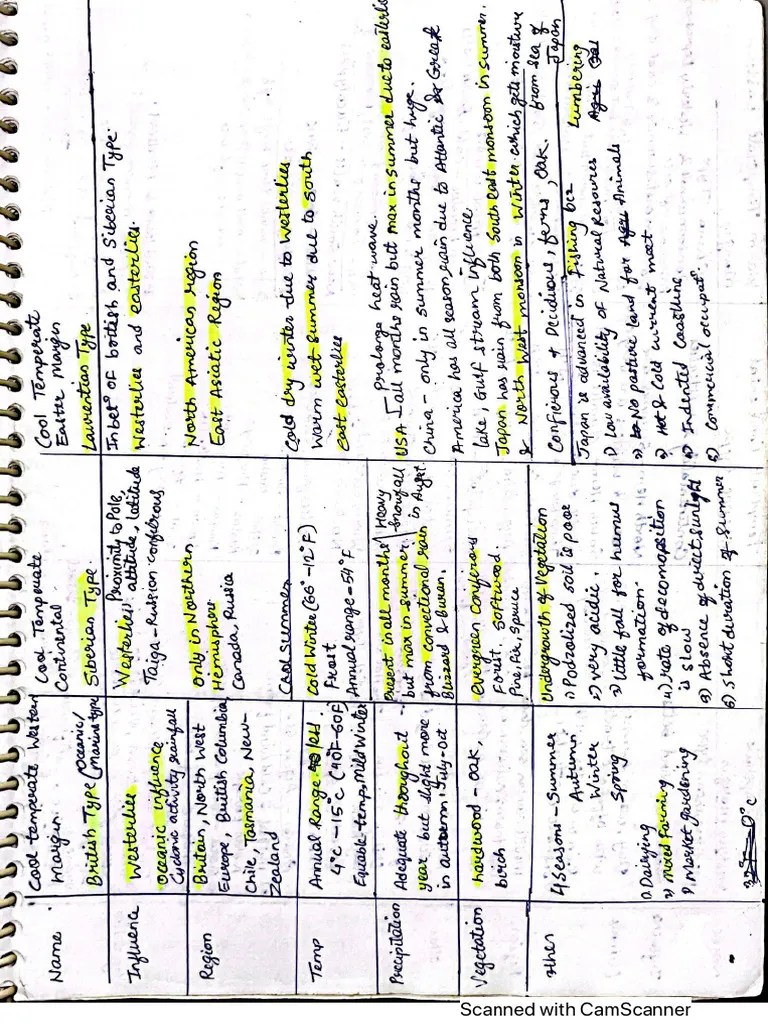 Name
Cool temperate Western
Margin
British Type (oceanic/
marine type
Cool Temperate
Continental
Siberian Type
Cool Temperate
Easter Margin
Laurentian Type
Influence
Westerlies
Oceanic influence
Cyclonic activity rainfall
Westerlies, Proximity to Pole,
altitude, latitude
Taiga - Russian coniferous
Inbetn of british and Siberian Type.
Westerlies and easterlies.
Region
Britain, North West
Europe, British Columbia
Chile, Tasmania, New-
Zealand
Only in Northern
Hemisphere
Canada, Russia
North American region
East Asiatic Region
Temp
Annual Range less
4°C - 15°C (40F-60F
Equable temp, Mild Winter
Cool Summer
Cold Winter (66°-12°F)
Frost
Annual range - 54°F
Cold dry winter due to Westerlies
Warm wet summer due to south
east easterlies
Precipitation
Adequate throughout
year but slight more
in autumn July-Oct
Present in all months
but max in summer,
from convectional rain
Blizzard & Buran.
Heavy
snowfall
in August.
prolonge heat wave.
USA all months rain but max in summer due to easterlies
China - only in summer months but huge.
America has all season rain due to Atlantic & Great
lake, Gulf stream influence
Japan has rain from both South East monsoon in summer.
& North West monsoon in Winter which gets moisture
from Sea of
Japan
Vegetation
hardwood - oak,
birch
evergreen coniferous
Forest. Softwood
Pine, Fir, Spruce
Coniferous + Deciduous, ferns, Oak.
other
4 Seasons - Summer
Autumn
Winter
Spring
1) Dairying
2) Mixed Farming
3) Market gardening
Undergrowth of Vegetation
1) Podzolized soil is poor
2) very acidic.
3) little fall for humus
formation.
4) rate of decomposition
is slow
5) Absence of direct sunlight
6) Short duration of summer
Japan is advanced in Fishing bcz
Lumbering
1) Low availability of Natural Resources
2) No pasture land for Animals
3) Hot & Cold current meet
4) Indented Coastline.
5) Commercial occupatn
Scanned with CamScanner